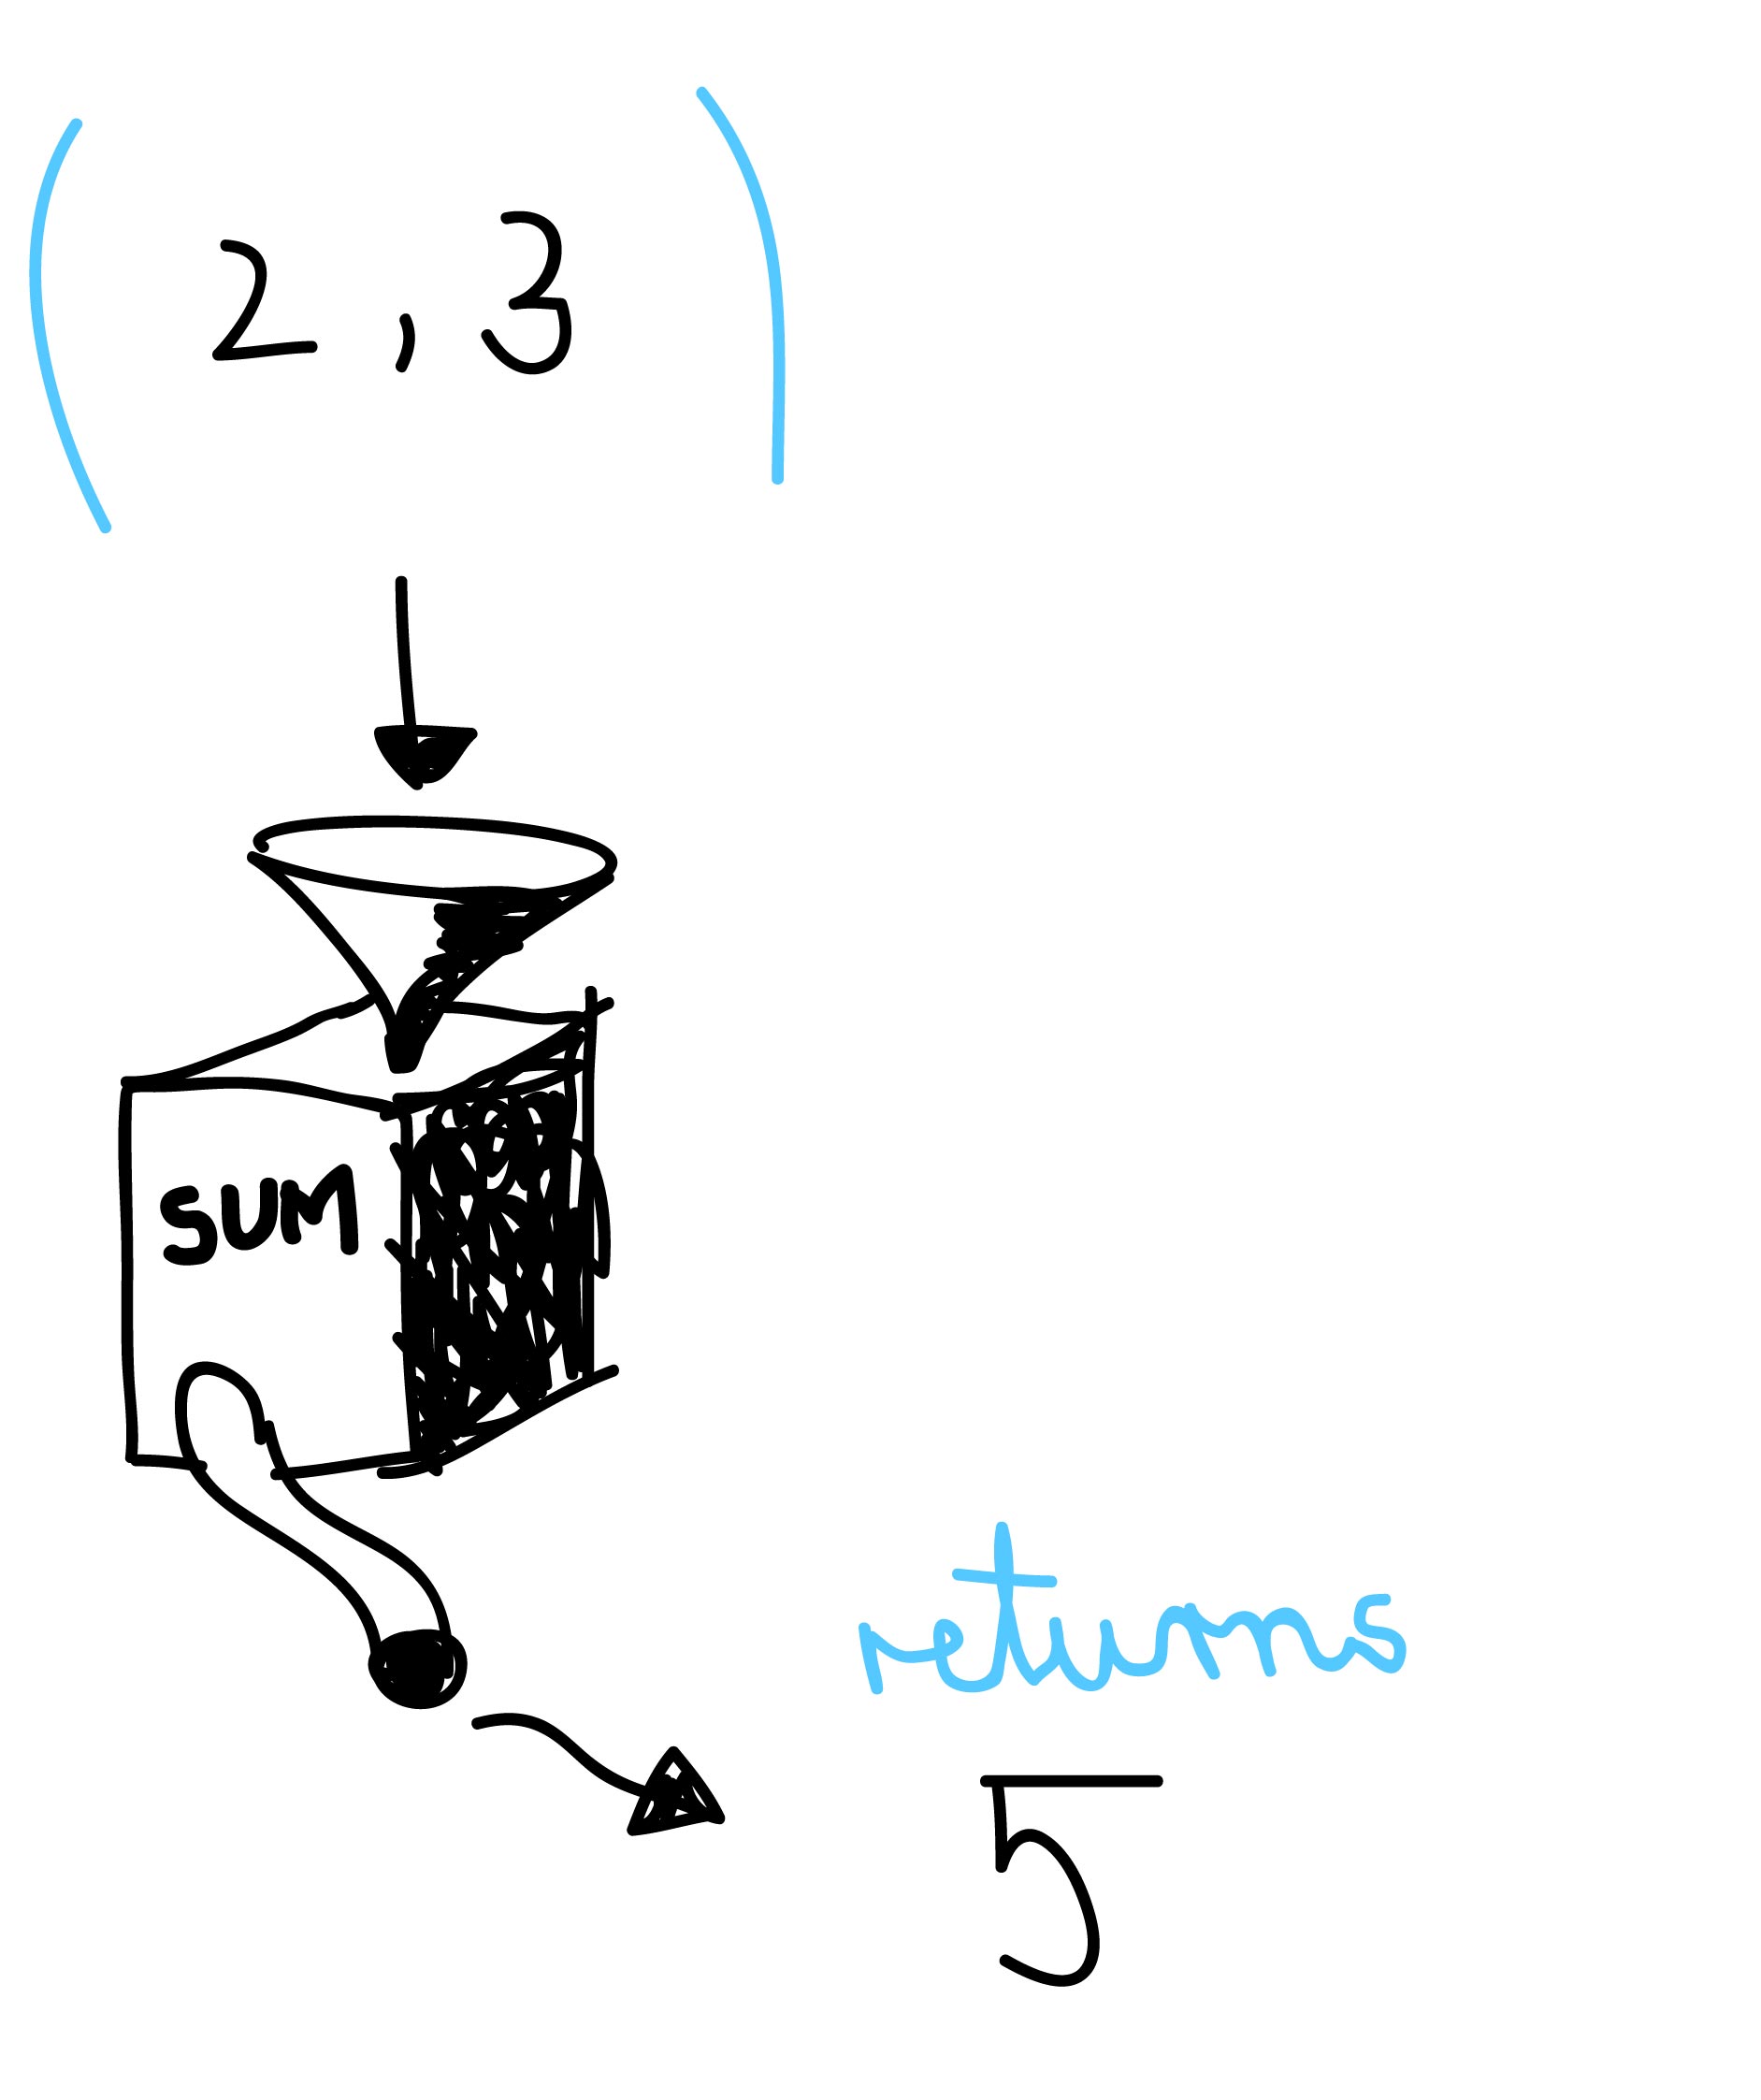 (2, 3)
SUM
returns
5